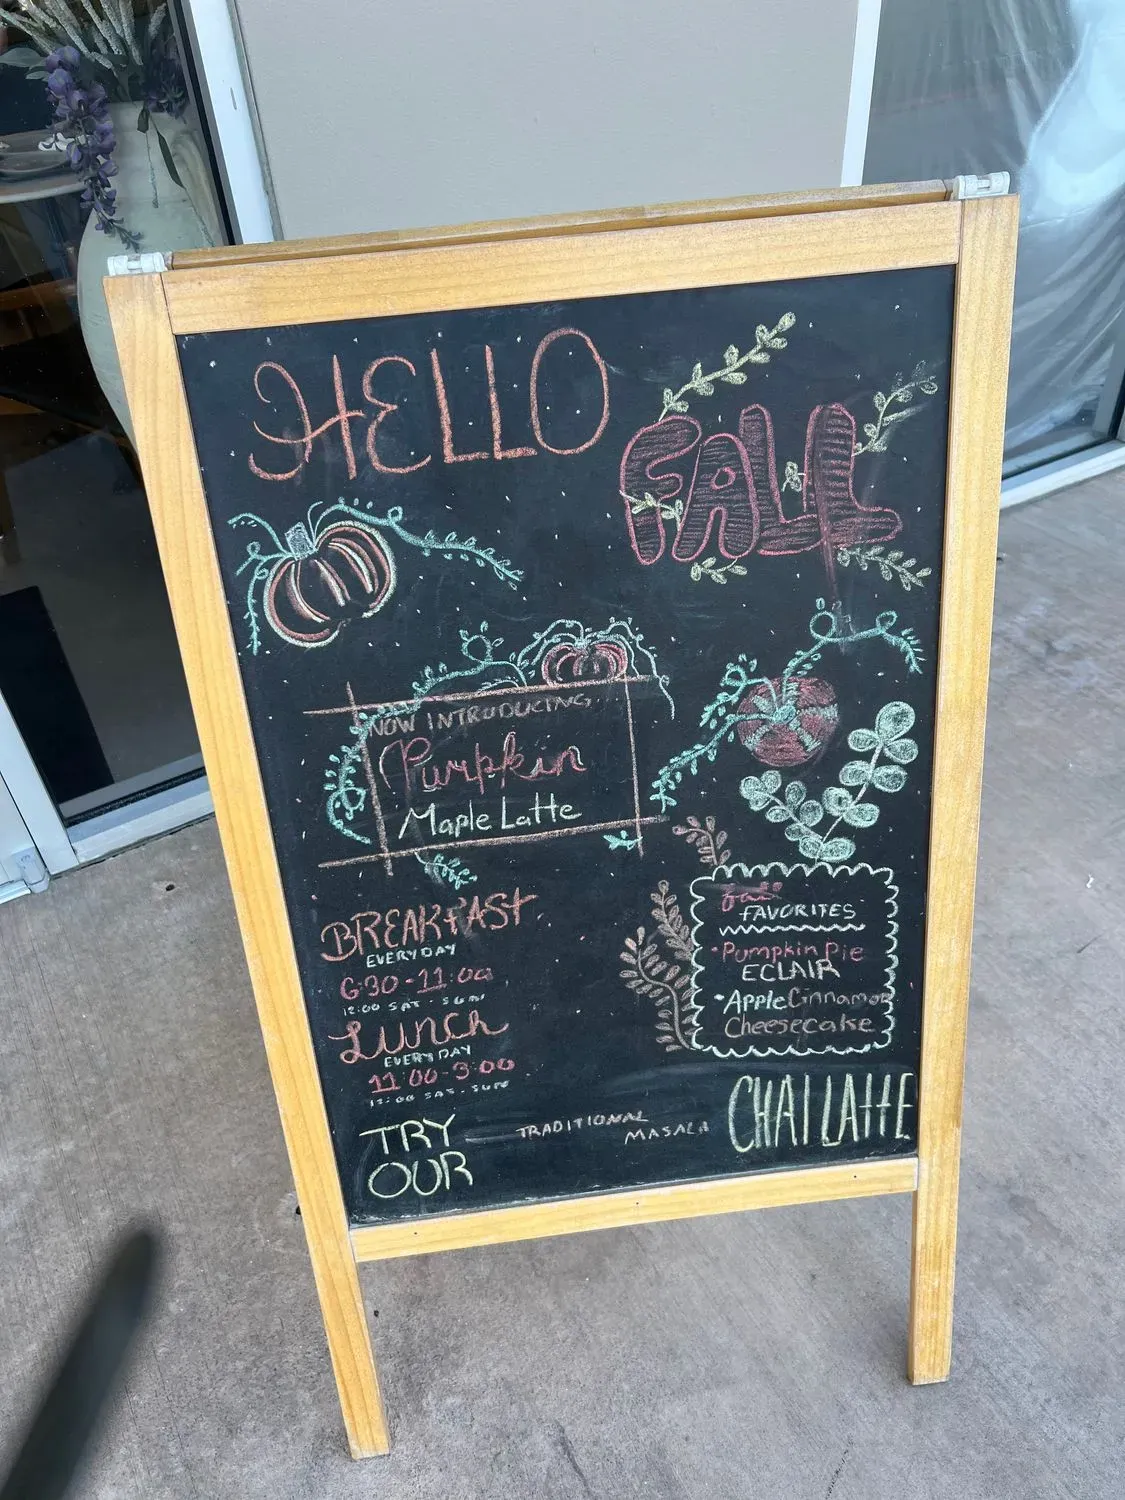 HELLO
FALL
NOW INTRODUCING
Pumpkin
Maple Latte
BREAKFAST
EVERYDAY
6:30-11:00
12:00 SAT-SUN
LUNCH
EVERYDAY
11:00-3:00
12:00 SAT-SUN
fall
FAVORITES
•Pumpkin Pie
ECLAIR
•Apple Cinnamon
Cheesecake
TRY
OUR
TRADITIONAL
MASALA
CHAI LATTE